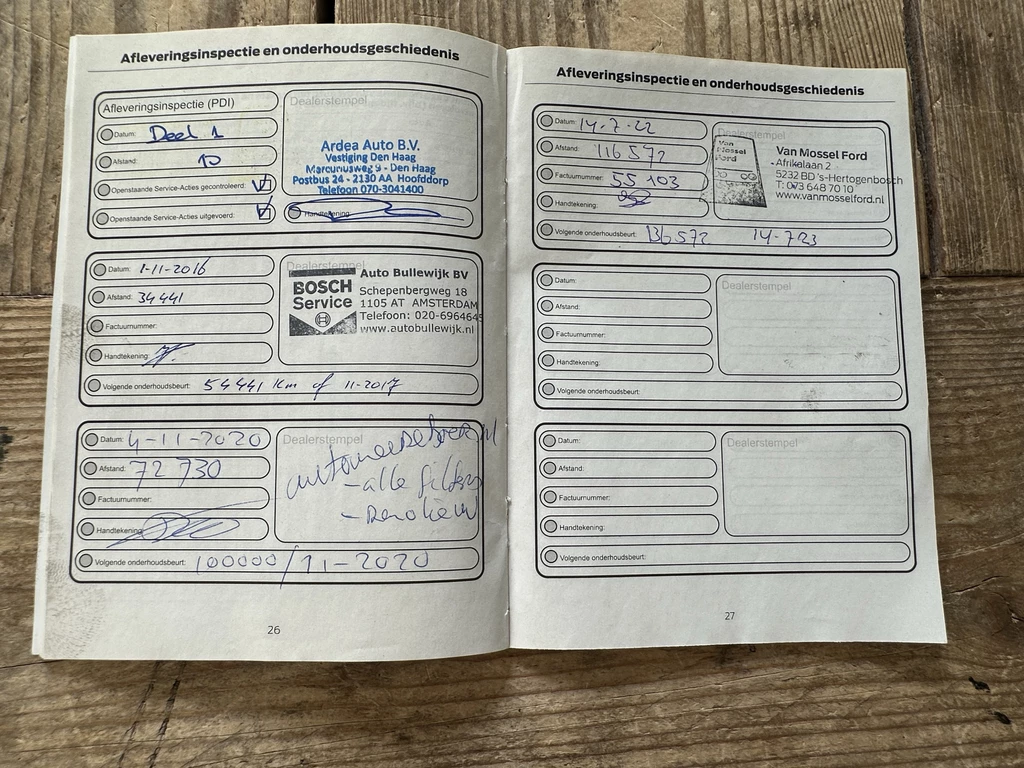 Afleveringsinspectie en onderhoudsgeschiedenis
Afleveringsinspectie (PDI)
Datum: Deel 1
Afstand: 10
Openstaande Service-Acties gecontroleerd:
Openstaande Service-Acties uitgevoerd:
Dealerstempel
Ardea Auto B.V.
Vestiging Den Haag
Marcunusweg 9 - Den Haag
Postbus 24 - 2130 AA Hoofddorp
Telefoon 070-3041400
Handtekening:
Datum: 1-11-2016
Afstand: 34441
Factuurnummer:
Handtekening:
Dealerstempel
BOSCH
Service
Auto Bullewijk BV
Schepenbergweg 18
1105 AT AMSTERDAM
Telefoon: 020-696464
www.autobullewijk.nl
Volgende onderhoudsbeurt: 54441 Km of 11-2017
Datum: 4-11-2020
Afstand: 72 730
Factuurnummer:
Handtekening:
Dealerstempel
- alle filters
Volgende onderhoudsbeurt: 100000/11-2020
26
Afleveringsinspectie en onderhoudsgeschiedenis
Datum: 14-7-22
Afstand: 116572
Factuurnummer: 55103
Handtekening:
Dealerstempel
Van
Mossel
Ford
Van Mossel Ford
Afrikalaan 2
5232 BD 's-Hertogenbosch
T: 073 648 70 10
www.vanmosselford.nl
Volgende onderhoudsbeurt: 136572 14-7-23
Datum:
Afstand:
Factuurnummer:
Handtekening:
Dealerstempel
Volgende onderhoudsbeurt:
Datum:
Afstand:
Factuurnummer:
Handtekening:
Dealerstempel
Volgende onderhoudsbeurt:
27